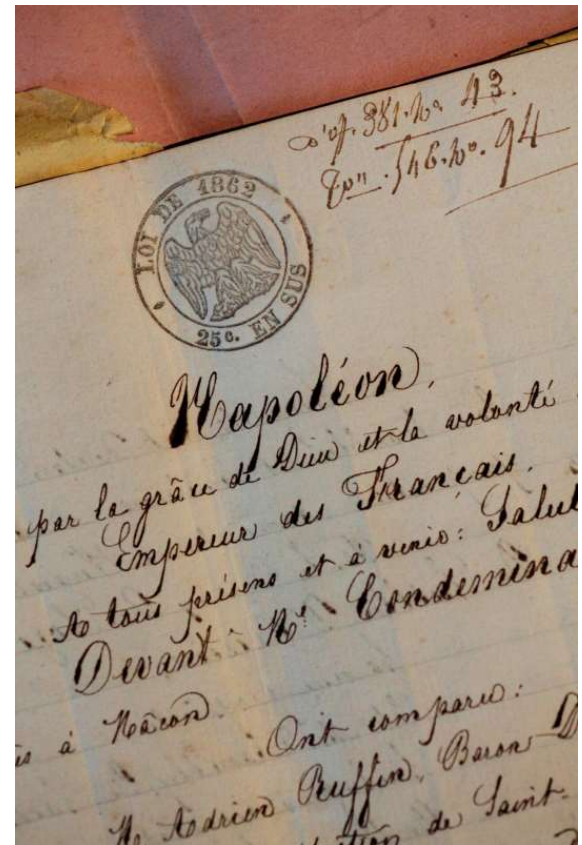 d'of. 381. No. 43.
546. No. 94
LOI DE 1862
25c. EN SUS
Napoléon,
par la grâce de Dieu et la volonté
Empereur des Français,
A tous présens et à venir: Salut
Devant Me. Condemina
à Mâcon.
Ont comparu:
M. Adrien Ruffin, Baron
de Saint-